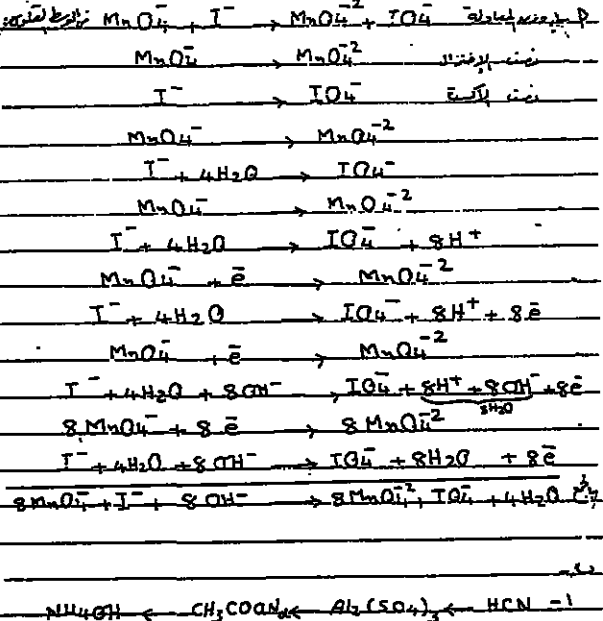 P- وزن المعادلة MnO₄⁻ + I⁻ → MnO₄⁻² + IO₄⁻ في الوسط القلوي:
نصف الإختزال MnO₄⁻ → MnO₄⁻²
نصف الأكسدة I⁻ → IO₄⁻
MnO₄⁻ → MnO₄⁻²
I⁻ + 4H₂O → IO₄⁻
MnO₄⁻ → MnO₄⁻²
I⁻ + 4H₂O → IO₄⁻ + 8H⁺
MnO₄⁻ + e⁻ → MnO₄⁻²
I⁻ + 4H₂O → IO₄⁻ + 8H⁺ + 8e⁻
MnO₄⁻ + e⁻ → MnO₄⁻²
I⁻ + 4H₂O + 8OH⁻ → IO₄⁻ + 8H⁺ + 8OH⁻ + 8e⁻
8H₂O
8MnO₄⁻ + 8e⁻ → 8MnO₄⁻²
I⁻ + 4H₂O + 8OH⁻ → IO₄⁻ + 8H₂O + 8e⁻
8MnO₄⁻ + I⁻ + 8OH⁻ → 8MnO₄⁻² + IO₄⁻ + 4H₂O
ب-
1- HCN ← Al₂(SO₄)₃ ← CH₃COONa ← NH₄OH